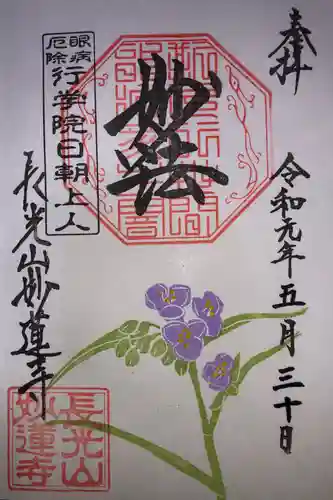 奉拝
令和元年五月三十日
妙法
眼病
厄除
行学院日朝上人
長光山妙蓮寺
長光山
妙蓮寺